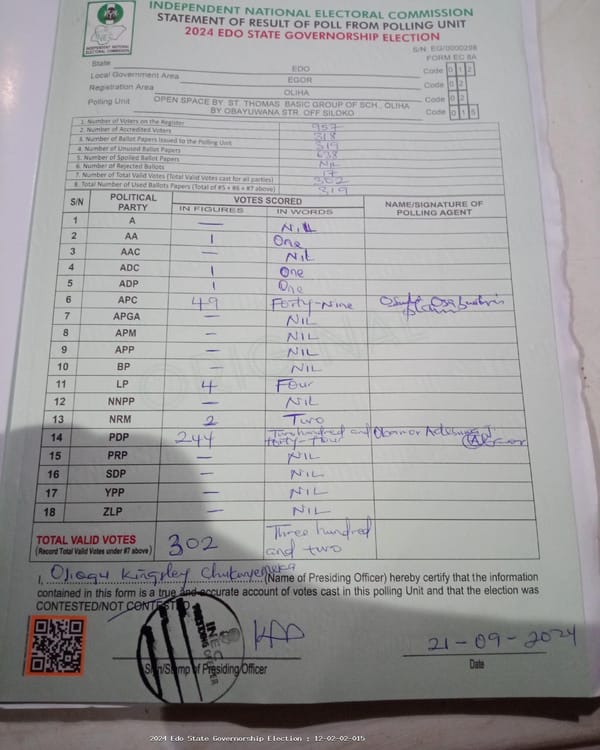 INDEPENDENT NATIONAL ELECTORAL COMMISSION
STATEMENT OF RESULT OF POLL FROM POLLING UNIT
2024 EDO STATE GOVERNORSHIP ELECTION
INDEPENDENT NATIONAL ELECTORAL COMMISSION
S/N: EG/0000298
FORM EC 8A
State EDO Code 0 1 2
Local Government Area EGOR Code 0 2
Registration Area OLIHA Code 0 2
Polling Unit OPEN SPACE BY. ST. THOMAS BASIC GROUP OF SCH., OLIHA BY OBAYUWANA STR. OFF SILOKO Code 0 1 5
1. Number of Voters on the Register 957
2. Number of Accredited Voters 318
3. Number of Ballot Papers Issued to the Polling Unit
4. Number of Unused Ballot Papers 638
5. Number of Spoiled Ballot Papers NIL
6. Number of Rejected Ballots 17
7. Number of Total Valid Votes (Total Valid Votes cast for all parties) 302
8. Total Number of Used Ballots Papers (Total of #5 + #6 + #7 above) 319
S/N POLITICAL PARTY VOTES SCORED NAME/SIGNATURE OF POLLING AGENT
IN FIGURES IN WORDS
1 A — NIL
2 AA 1 One
3 AAC — NIL
4 ADC 1 One
5 ADP 1 One
6 APC 49 Forty-Nine
7 APGA — NIL
8 APM — NIL
9 APP — NIL
10 BP — NIL
11 LP 4 Four
12 NNPP — NIL
13 NRM 2 Two
14 PDP 244 Two hundred and forty-four
15 PRP — NIL
16 SDP — NIL
17 YPP — NIL
18 ZLP — NIL
TOTAL VALID VOTES 302 Three hundred and two
(Record Total Valid Votes under #7 above)
I, Ojiogu Kingsley Chukwuemeka (Name of Presiding Officer) hereby certify that the information
contained in this form is a true and accurate account of votes cast in this polling Unit and that the election was
CONTESTED/NOT CONTESTED
INEC
PRESIDING OFFICER
21-09-2024
Sign/Stamp of Presiding Officer Date
2024 Edo State Governorship Election : 12-02-02-015